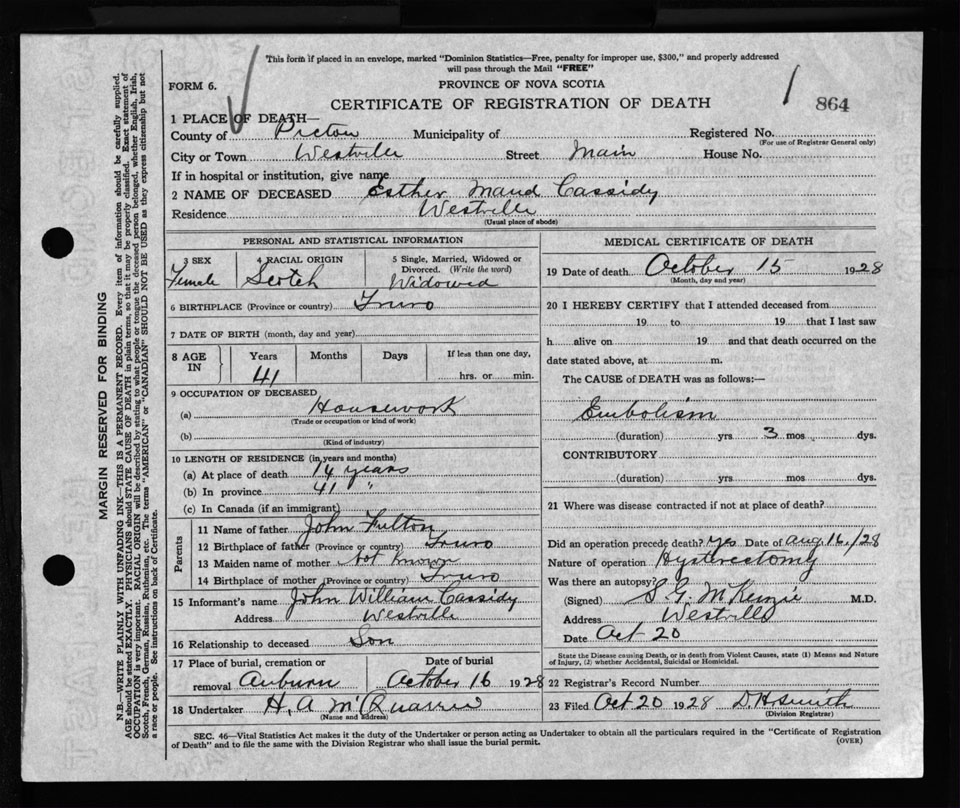 This form if placed in an envelope, marked "Dominion Statistics—Free, penalty for improper use, $300," and properly addressed
will pass through the Mail "FREE"
FORM 6.
PROVINCE OF NOVA SCOTIA
CERTIFICATE OF REGISTRATION OF DEATH
864
1 PLACE OF DEATH—
County of Pictou Municipality of Registered No.
(For use of Registrar General only)
City or Town Westville Street Main House No.
If in hospital or institution, give name
2 NAME OF DECEASED Esther Maud Cassidy
Residence Westville
(Usual place of abode)
PERSONAL AND STATISTICAL INFORMATION
3 SEX 4 RACIAL ORIGIN 5 Single, Married, Widowed or
Divorced. (Write the word)
Female Scotch Widowed
6 BIRTHPLACE (Province or country) Truro
7 DATE OF BIRTH (month, day and year)
8 AGE IN Years Months Days If less than one day,
41 hrs. or min.
9 OCCUPATION OF DECEASED
(a) Housework
(Trade or occupation or kind of work)
(b)
(Kind of industry)
10 LENGTH OF RESIDENCE (in years and months)
(a) At place of death 14 years
(b) In province 41 "
(c) In Canada (if an immigrant)
Parents
11 Name of father John Fulton
12 Birthplace of father (Province or country) Truro
13 Maiden name of mother Not known
14 Birthplace of mother (Province or country) Truro
15 Informant's name John William Cassidy
Address Westville
16 Relationship to deceased Son
17 Place of burial, cremation or Date of burial
removal Auburn October 16 1928
18 Undertaker H. A McQuarrie
(Name and address)
MEDICAL CERTIFICATE OF DEATH
19 Date of death October 15 1928
(Month, day and year)
20 I HEREBY CERTIFY that I attended deceased from
19 to 19 that I last saw
h alive on 19 and that death occurred on the
date stated above, at m.
The CAUSE of DEATH was as follows:—
Embolism
(duration) yrs 3 mos dys.
CONTRIBUTORY
(duration) yrs mos dys.
21 Where was disease contracted if not at place of death?
Did an operation precede death? Yes Date of Aug 16/28
Nature of operation Hysterectomy
Was there an autopsy?
(Signed) S G. McKenzie M.D.
Address Westville
Date Oct 20
State the Disease causing Death, or in death from Violent Causes, state (1) Means and Nature
of Injury, (2) whether Accidental, Suicidal or Homicidal.
22 Registrar's Record Number
23 Filed Oct 20 1928 D H Smith
(Division Registrar)
SEC. 46—Vital Statistics Act makes it the duty of the Undertaker or person acting as Undertaker to obtain all the particulars required in the "Certificate of Registration
of Death" and to file the same with the Division Registrar who shall issue the burial permit.
(OVER)
MARGIN RESERVED FOR BINDING
N.B.—WRITE PLAINLY WITH UNFADING INK—THIS IS A PERMANENT RECORD. Every item of information should be carefully supplied.
AGE should be stated EXACTLY. PHYSICIANS should STATE CAUSE OF DEATH in plain terms, so that it may be properly classified. Exact statement of
OCCUPATION is very important. RACIAL ORIGIN will be described by stating to what people or tongue the deceased person belonged, whether English, Irish,
Scotch, French, German, Russian, Ruthenian, etc. The terms "AMERICAN" or "CANADIAN" SHOULD NOT BE USED as they express citizenship but not
a race or people. See instructions on back of Certificate.